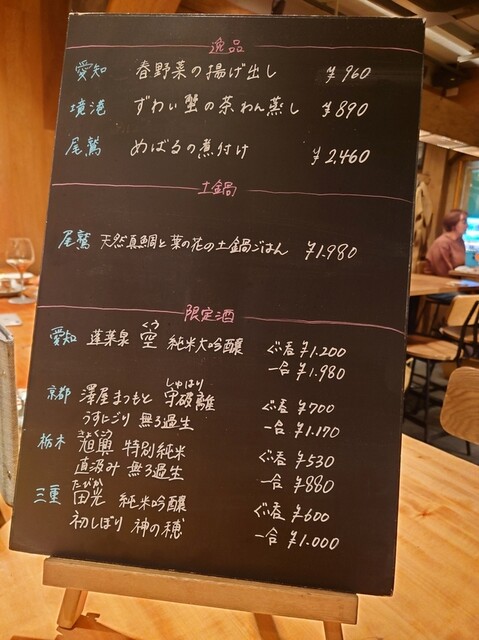 逸品
愛知 春野菜の揚げ出し ¥960
境港 ずわい蟹の茶わん蒸し ¥890
尾鷲 めばるの煮付け ¥2,460
土鍋
尾鷲 天然真鯛と菜の花の土鍋ごはん ¥1.980
限定酒
くう
愛知 蓬莱泉 空 純米大吟醸 ぐい呑 ¥1.200
一合 ¥1.980
しゅはり
京都 澤屋まつもと 守破離 ぐい呑 ¥700
うすにごり 無ろ過生 一合 ¥1.170
きょくこう
栃木 旭興 特別純米 ぐい呑 ¥530
直汲み 無ろ過生 一合 ¥880
たびか
三重 田光 純米吟醸 ぐい呑 ¥600
初しぼり 神の穂 一合 ¥1.000